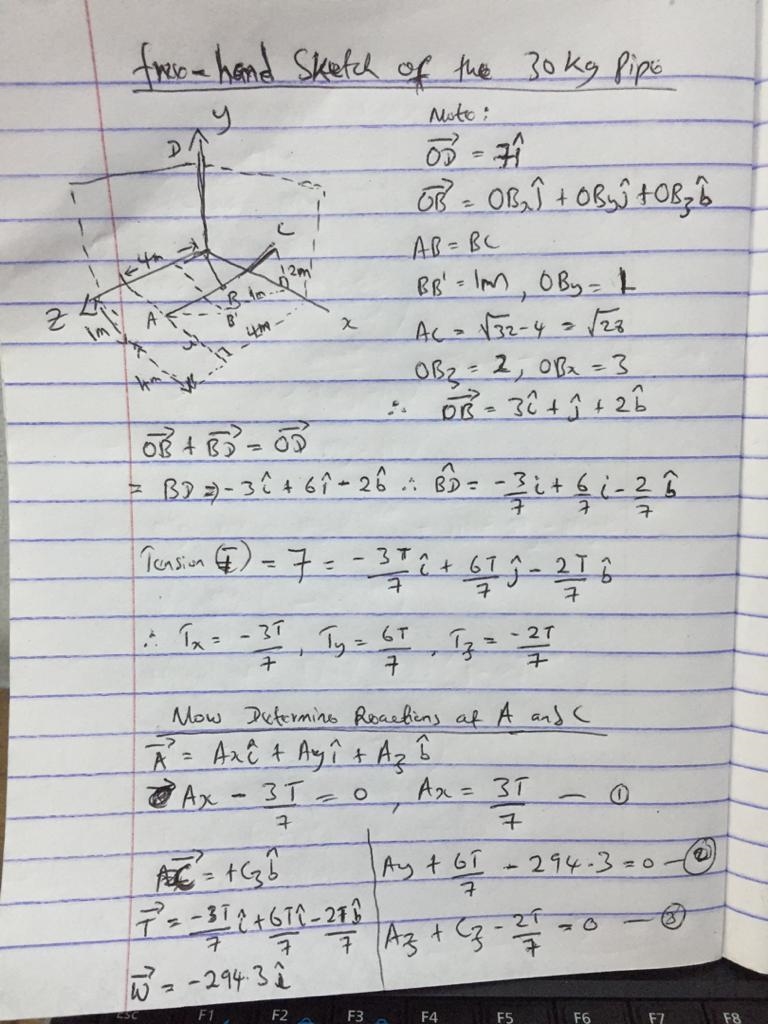 free-hand Sketch of the 30kg Pipe
y
D
4m
C
2m
Z
A
B
1m
B'
x
1m
4m
4m
Note:
OD = 7î
OB = OBxî + OByĵ + OBzb̂
AB = BC
BB' = 1m, OBy = 1
AC = √32-4 = √28
OBz = 2, OBx = 3
∴ OB = 3î + ĵ + 2b̂
OB + BD = OD
= BD ⇒ -3î + 6î - 2b̂ ∴ BD = -3/7 i + 6/7 i - 2/7 b̂
Tension (T) = 7 = -3T/7 î + 6T/7 ĵ - 2T/7 b̂
∴ Tx = -3T/7, Ty = 6T/7, Tz = -2T/7
Now Determine Reactions at A and C
A = Axî + Ayî + Azb̂
Ax - 3T/7 = 0, Ax = 3T/7 — ①
C = +Czb̂
Ay + 6T/7 - 294.3 = 0 — ②
T = -3T/7 î + 6T/7 î - 2T/7 b̂
Az + Cz - 2T/7 = 0 — ③
W = -294.3î
esc F1 F2 F3 F4 F5 F6 F7 F8